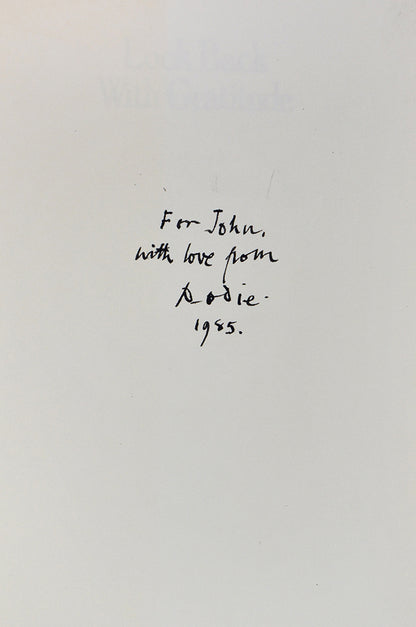 Look Back
With Gratitude
For John,
with love from
Dodie.
1985.